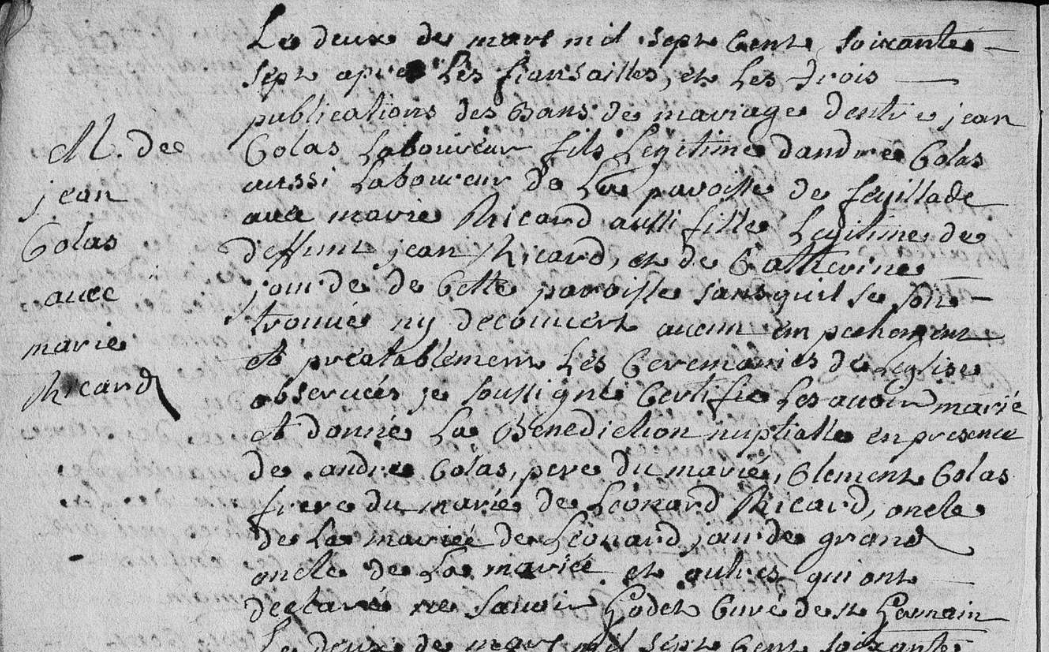 Le deux de mars mil sept cent soixante
sept apres les fiansailles, et les trois
publications des Bans de mariage dentre jean
Colas Laboureur fils Legitime dandre Colas
aussi Laboureur de La paroisse de feuillade
avec marie Ricard aussi fille Legitime de
deffunt jean Ricard, et de Catherine
jourde de Cette paroisse sans quil se soit
trouvé ny decouvert aucun enpechement
et préalablement Les Ceremonies de Leglise
observées je soussigné Certifie Les avoir marié
et donné La Benediction nuptialle en presence
de andre Colas, pere du marié, Clement Colas
frere du marié de Léonard Ricard, oncle
de La mariée de Léonard jourde grand
oncle de La mariée et autres qui ont
declaré ne savoir Godet Curé de st Germain
Le deux de mars mil sept Cent soixante
M. de
jean
Colas
avec
marie
Ricard